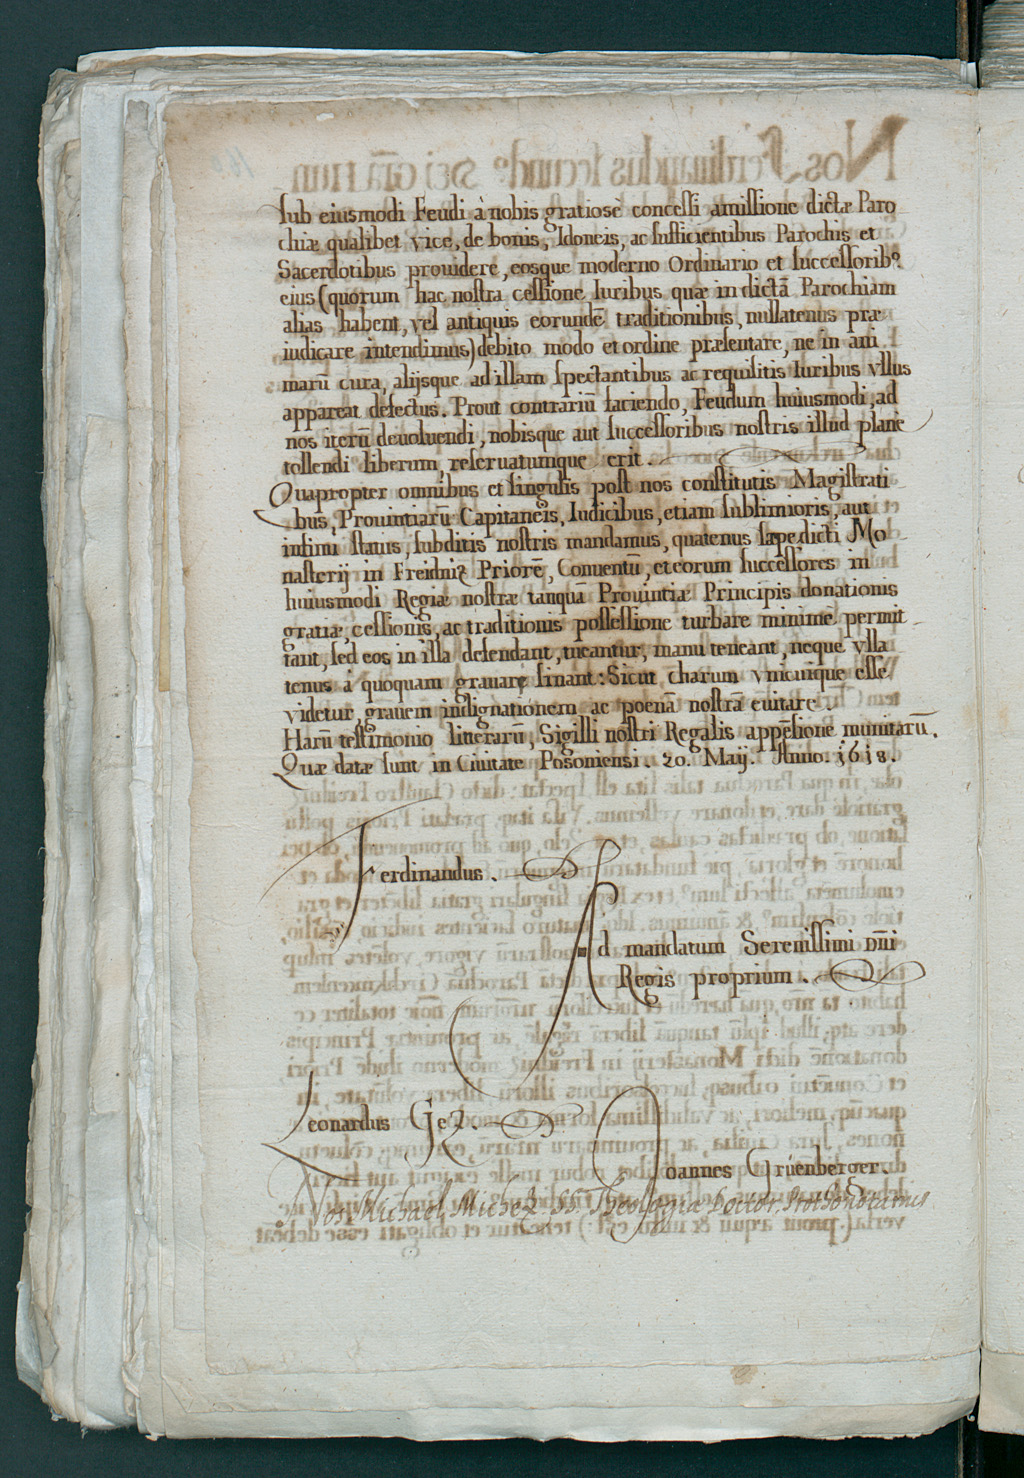 sub eiusmodi Feudi à nobis gratiosè concessi amissione dictæ Paro
chiæ qualibet vice, de bonis, Idoneis, ac sufficientibus Parochis et
Sacerdotibus prouidere, eosque moderno Ordinario et successorib9
eius (quorum hac nostra cessione Iuribus quæ in dictā Parochiam
alias habent, vel antiquis eorundē traditionibus, nullatenus præ
iudicare intendimus) debito modo et ordine præsentare, ne in ani
marū cura, alijsque ad illam spectantibus ac requisitis Iuribus vllus
appareat defectus. Prout contrariū faciendo, Feudum huiusmodi, ad
nos iterū deuoluendi, nobisque aut successoribus nostris illud planè
tollendi liberum, reseruatumque erit.
Quapropter omnibus et singulis post nos constitutis Magistrati
bus, Prouintiarū Capitaneis, Iudicibus, etiam sublimioris, aut
infimi status, subditis nostris mandamus, quatenus sæpedicti Mo
nasterij in Freidniz Priorē, Conuentū, et eorum successores in
huiusmodi Regiæ nostræ tanquā Prouintiæ Principis donationis
gratiæ, cessionis, ac traditionis possessione turbare minime permit
tant, sed eos in illa defendant, tueantur, manu teneant, neque vlla
tenus à quoquam grauare sinant: Sicut charum vnicuique esse
videtur, grauem indignationem ac poenā nostrā euitare.
Harū testimonio litterarū, Sigilli nostri Regalis appēsione munitarū.
Quæ datæ sunt in Ciuitate Posoniensi. 20. Maij. Anno. 1618.
Ferdinandus.
Ad mandatum Serenissimi Dn̄i
Regis proprium.
Leonardus Gez.
Joannes Grüenberger.
Nos Michael Michez SS. Theologiæ Doctor, Prothonotarius